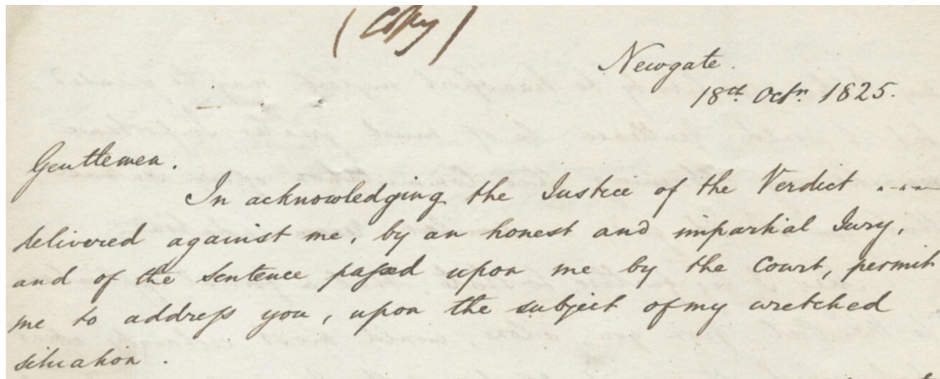 (Copy)
Newgate.
18th Octr. 1825.
Gentlemen.
In acknowledging the Justice of the Verdict ....
delivered against me, by an honest and impartial Jury,
and of the Sentence passed upon me by the Court, permit
me to address you, upon the subject of my wretched
situation.